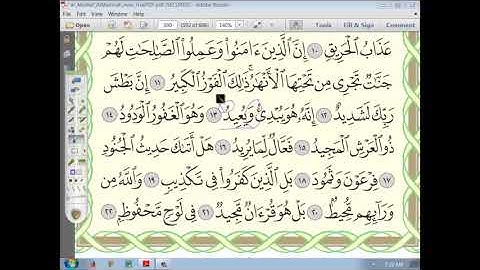 Adobe Reader
Open 590 (592 of 608) 140% Tools Fill & Sign Comment
عَذَابُ ٱلْحَرِيقِ ١٠ إِنَّ ٱلَّذِينَ ءَامَنُوا۟ وَعَمِلُوا۟ ٱلصَّٰلِحَٰتِ لَهُمْ
جَنَّٰتٌ تَجْرِى مِن تَحْتِهَا ٱلْأَنْهَٰرُ ۚ ذَٰلِكَ ٱلْفَوْزُ ٱلْكَبِيرُ ١١ إِنَّ بَطْشَ
رَبِّكَ لَشَدِيدٌ ١٢ إِنَّهُۥ هُوَ يُبْدِئُ وَيُعِيدُ ١٣ وَهُوَ ٱلْغَفُورُ ٱلْوَدُودُ ١٤
ذُو ٱلْعَرْشِ ٱلْمَجِيدُ ١٥ فَعَّالٌ لِّمَا يُرِيدُ ١٦ هَلْ أَتَىٰكَ حَدِيثُ ٱلْجُنُودِ
١٧ فِرْعَوْنَ وَثَمُودَ ١٨ بَلِ ٱلَّذِينَ كَفَرُوا۟ فِى تَكْذِيبٍ ١٩ وَٱللَّهُ مِن
وَرَآئِهِم مُّحِيطٌۢ ٢٠ بَلْ هُوَ قُرْءَانٌ مَّجِيدٌ ٢١ فِى لَوْحٍ مَّحْفُوظٍۭ ٢٢